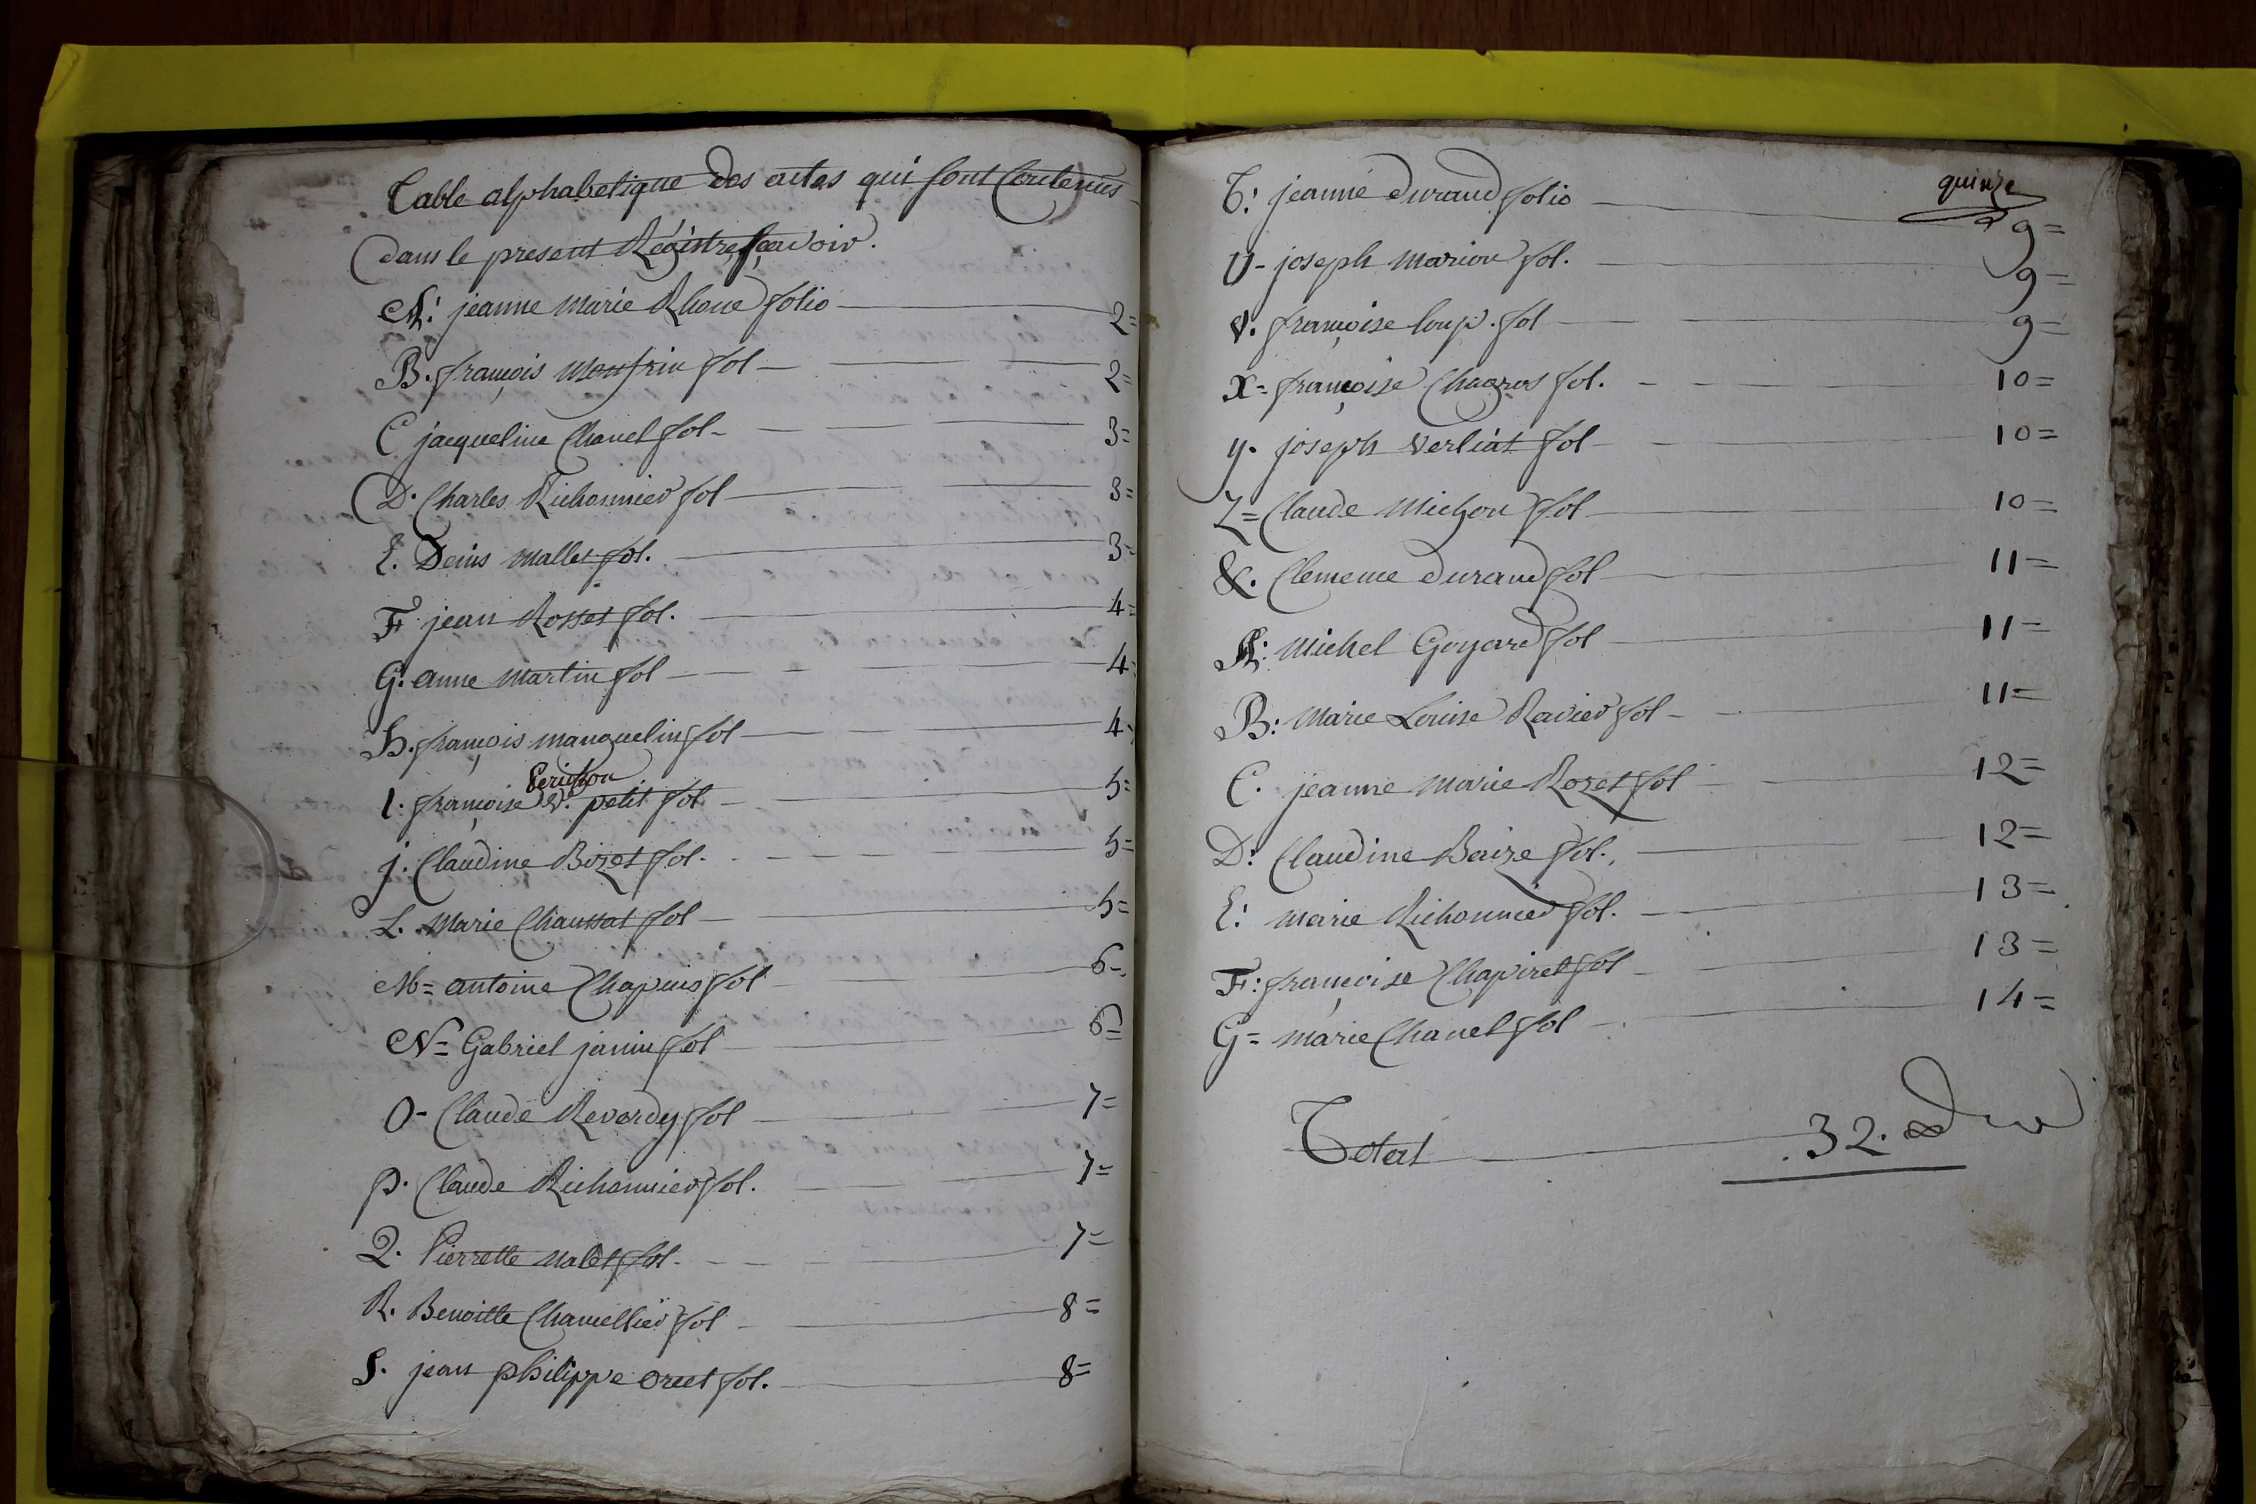 Table alphabetique des actes qui sont Contenus
dans le present Régistre sçavoir.
A: jeanne marie Rhone folio 2=
B. françois monfrin fol 2=
C jacqueline Chanel fol 3=
D. Charles Richonnier fol 3=
E. Denis mallet fol. 3=
F jean Rosset fol. 4=
G. anne martin fol 4=
H. françois manguelin fol 4=
Perichon
I. françoise v.e petit fol 5=
j. Claudine Bizet fol. 5=
L. Marie Chaussat fol 5=
M= antoine Chapuis fol 6=
N= Gabriel janin fol 6=
O- Claude Reverdy fol 7=
p. Claude Richonnier fol. 7=
Q. Pierrette malet fol. 7=
R. Benoitte Chamellier fol 8=
S. jean philippe oruet fol. 8=
quinze
T: jeanne durand folio 9=
U- joseph marion fol. 9=
v. françoise loup. fol 9=
X= françoise Chagros fol. 10=
y. joseph verliat fol 10=
Z= Claude Michon fol 10=
&. Clemence durand fol 11=
A: Michel Goyard fol 11=
B: Marie Louise Ravier fol 11=
C. jeanne marie Rozet fol 12=
D: Claudine Baize fol. 12=
E: marie Richonnier fol. 13=
F: françoise Chapiret fol 13=
G= marie Chanel fol 14=
Total 32.